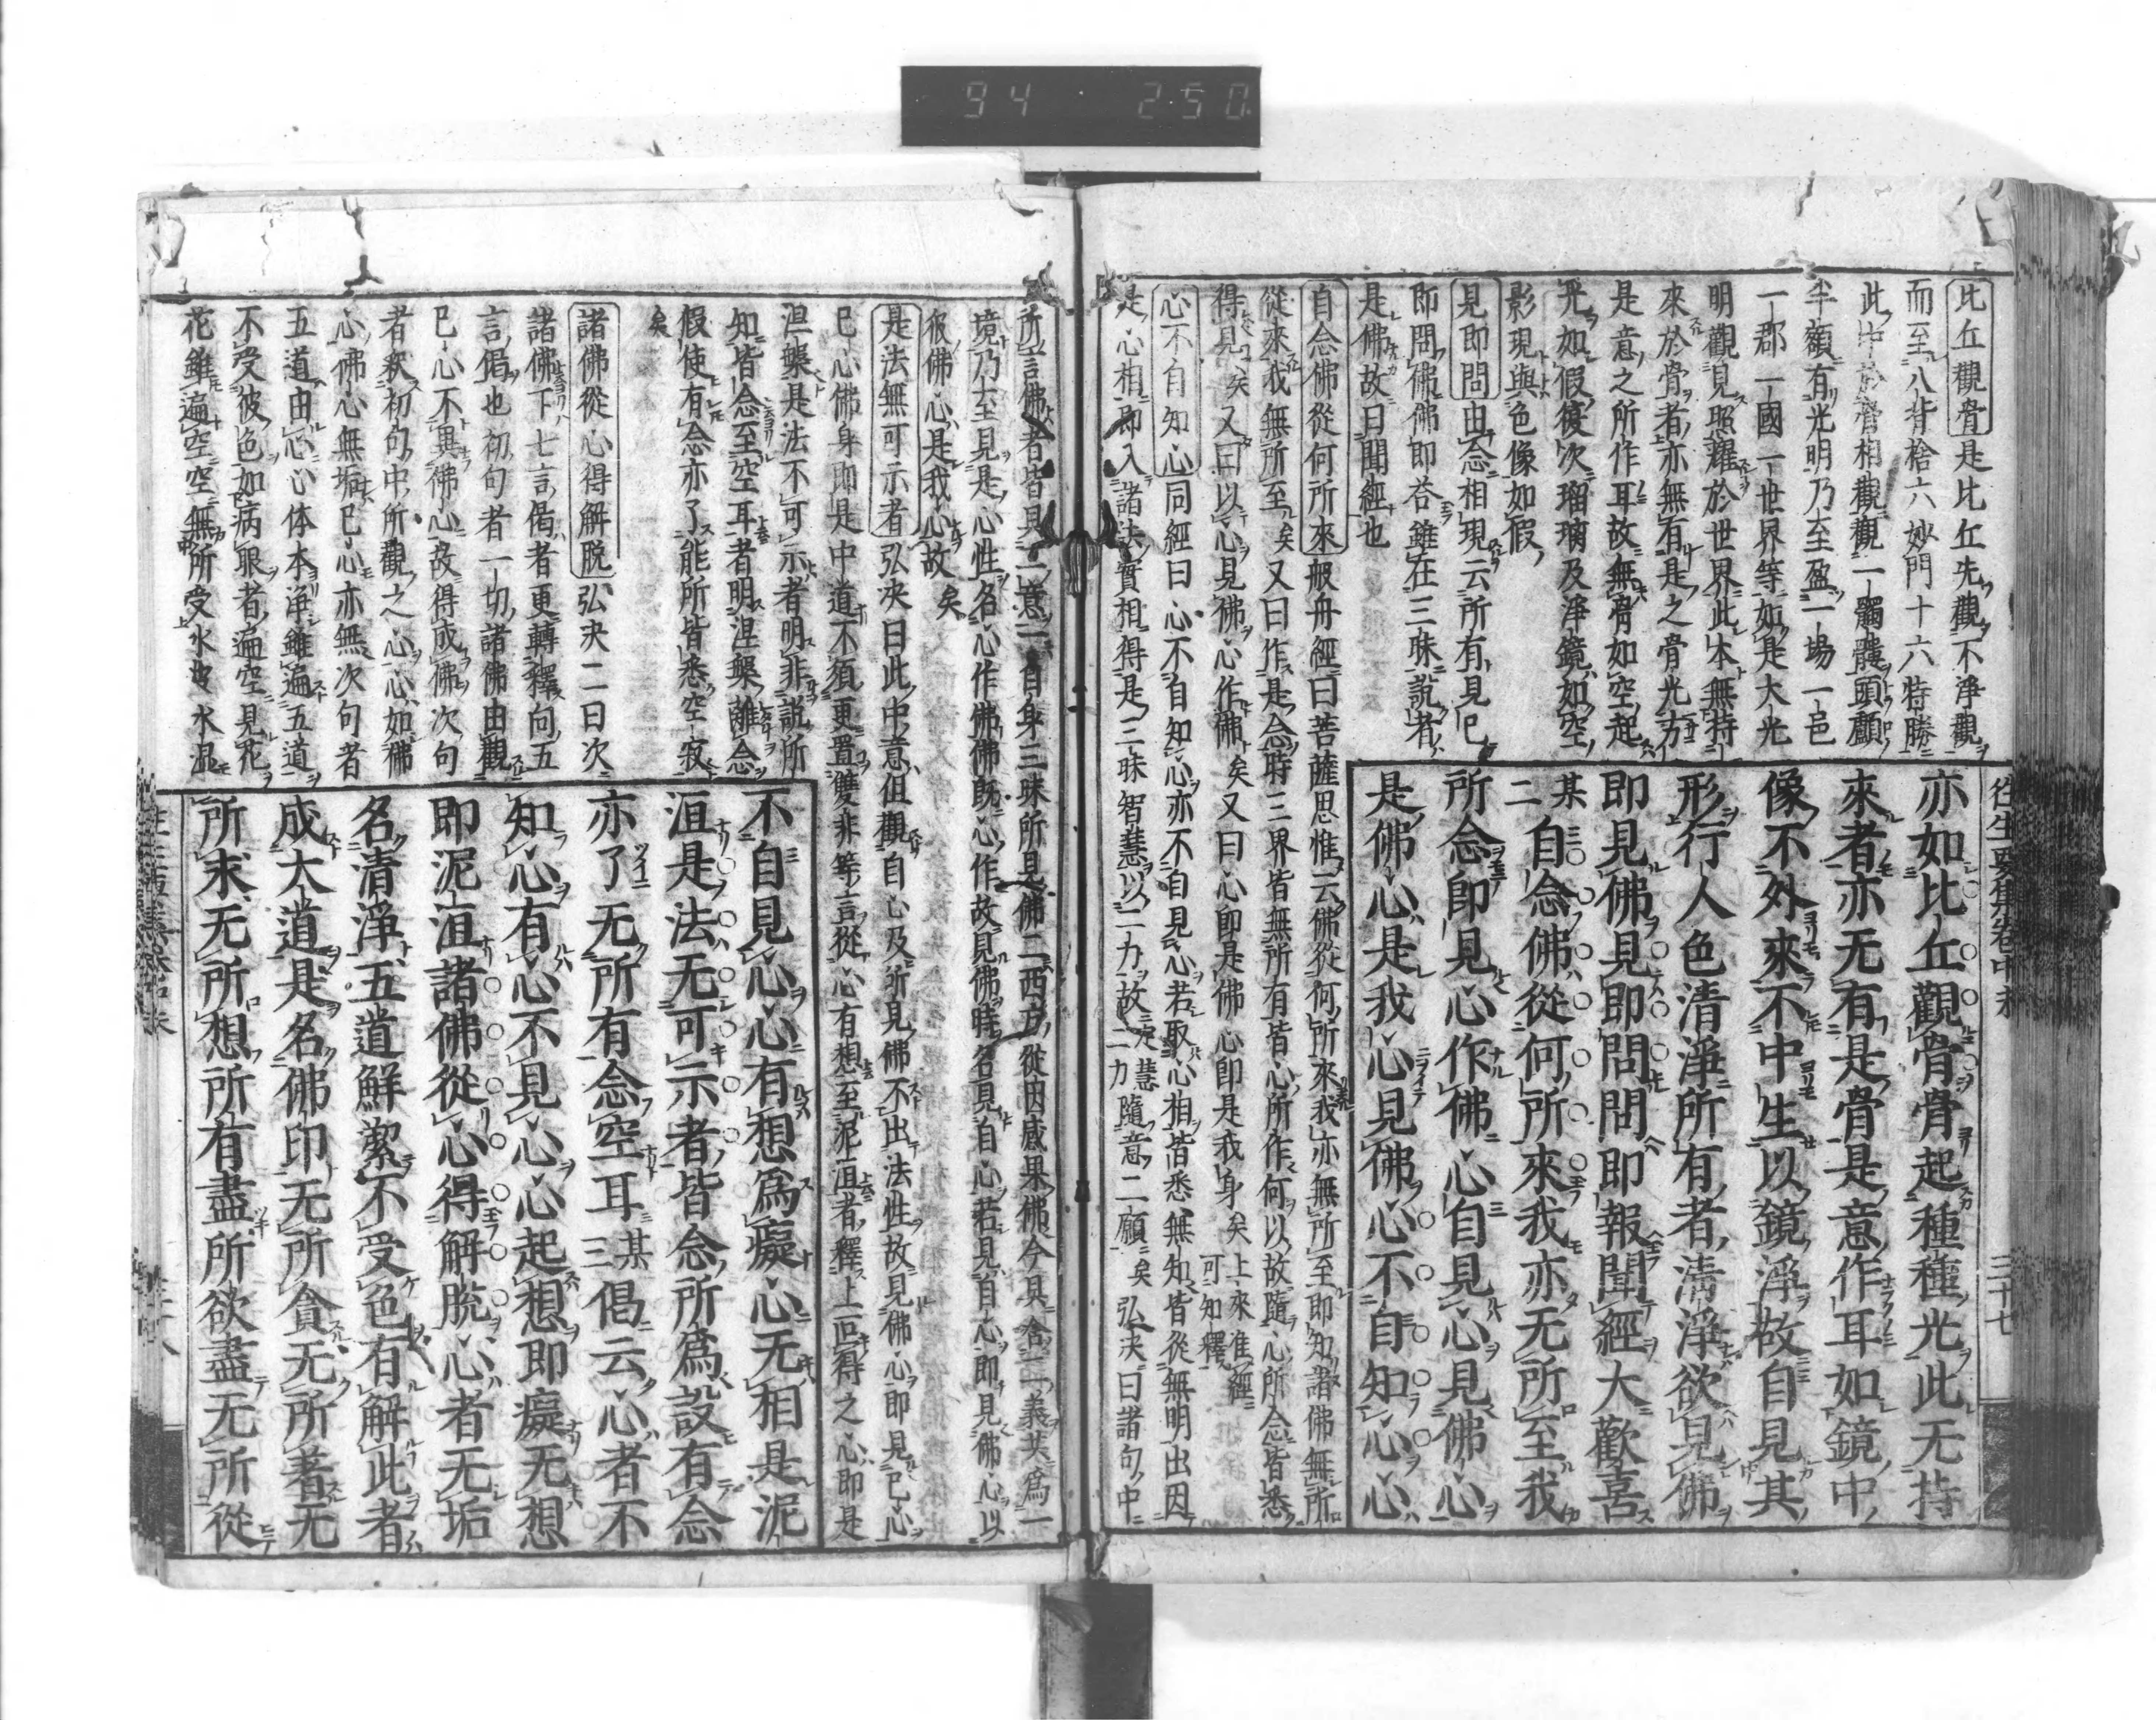 94 250
比丘觀骨是比丘先觀不淨觀
而至八背捨六妙門十六特勝
此中於骨相觀觀一髑髏頭顱
半額有光明乃至盈一場一邑
一郡一國一世界等如是大光
明觀見照耀於世界此本無持
來於骨者亦無有是之骨光方
是意之所作耳故無骨如空起
光如假復次瑠璃及淨鏡如空
影現與色像如假
見即問由念相現云所有見已
即問佛佛即答雖在三昧說者
是佛故曰聞經也
自念佛從何所來般舟經曰菩薩思惟云佛從何所來我亦無所至即知諸佛無所
從來我無所至矣又曰作是念時三界皆無所有皆心所作何以故隨心所念皆悉
得見矣又曰以心見佛心作佛矣又曰心即是佛心即是我身矣上來准經可知釋
心不自知心同經曰心不自知心亦不自見心若取心相皆悉無知皆從無明出因
是心相即入諸法實相得是三昧智慧以二力故一定慧二力隨意二願矣弘決曰諸句中
往生要集卷中末 三十七
亦如比丘觀骨骨起種種光此无持
來者亦无有是骨是意作耳如鏡中
像不外來不中生以鏡淨故自見其
形行人色清淨所有者清淨欲見佛
即見佛見即問問即報聞經大歡喜
某二自念佛從何所來我亦无所至我
所念即見心作佛心自見心見佛心
是佛心是我心見佛心不自知心心
所言佛者皆具二意一自身三昧所見佛二西方從因感果佛今具含二義共爲一
境乃至見是心性名心作佛佛既心作故見佛時名見自心若見自心即見佛心以
彼佛心是我心故矣
是法無可示者弘決曰此中意但觀自心及所見佛不出法性故見佛心即見己心
已心佛身即是中道不須更置雙非等言從心有想至泥洹者釋上二句得之心即是
涅槃是法不可示者明非說所
知皆念至空耳者明涅槃離念
假使有念亦了能所皆悉空寂
矣
諸佛從心得解脱弘決二曰次
諸佛下七言偈者更轉釋向五
言偈也初句者一切諸佛由觀
已心不異佛心故得成佛次句
者釈初句中所觀之心心如佛
心佛心無垢已心亦無次句者
五道由心心体本淨雖遍五道
不受彼色如病眼者遍空見花
花雖遍空空無所受水水濕
不自見心心有想爲癡心无相是泥
洹是法无可示者皆念所爲設有念
亦了无所有念空耳某三偈云心者不
知心有心不見心心起想即癡无想
即泥洹諸佛從心得解脱心者无垢
名清淨五道鮮潔不受色有解此者
成大道是名佛印无所貪无所著无
所求无所想所有盡所欲盡无所從